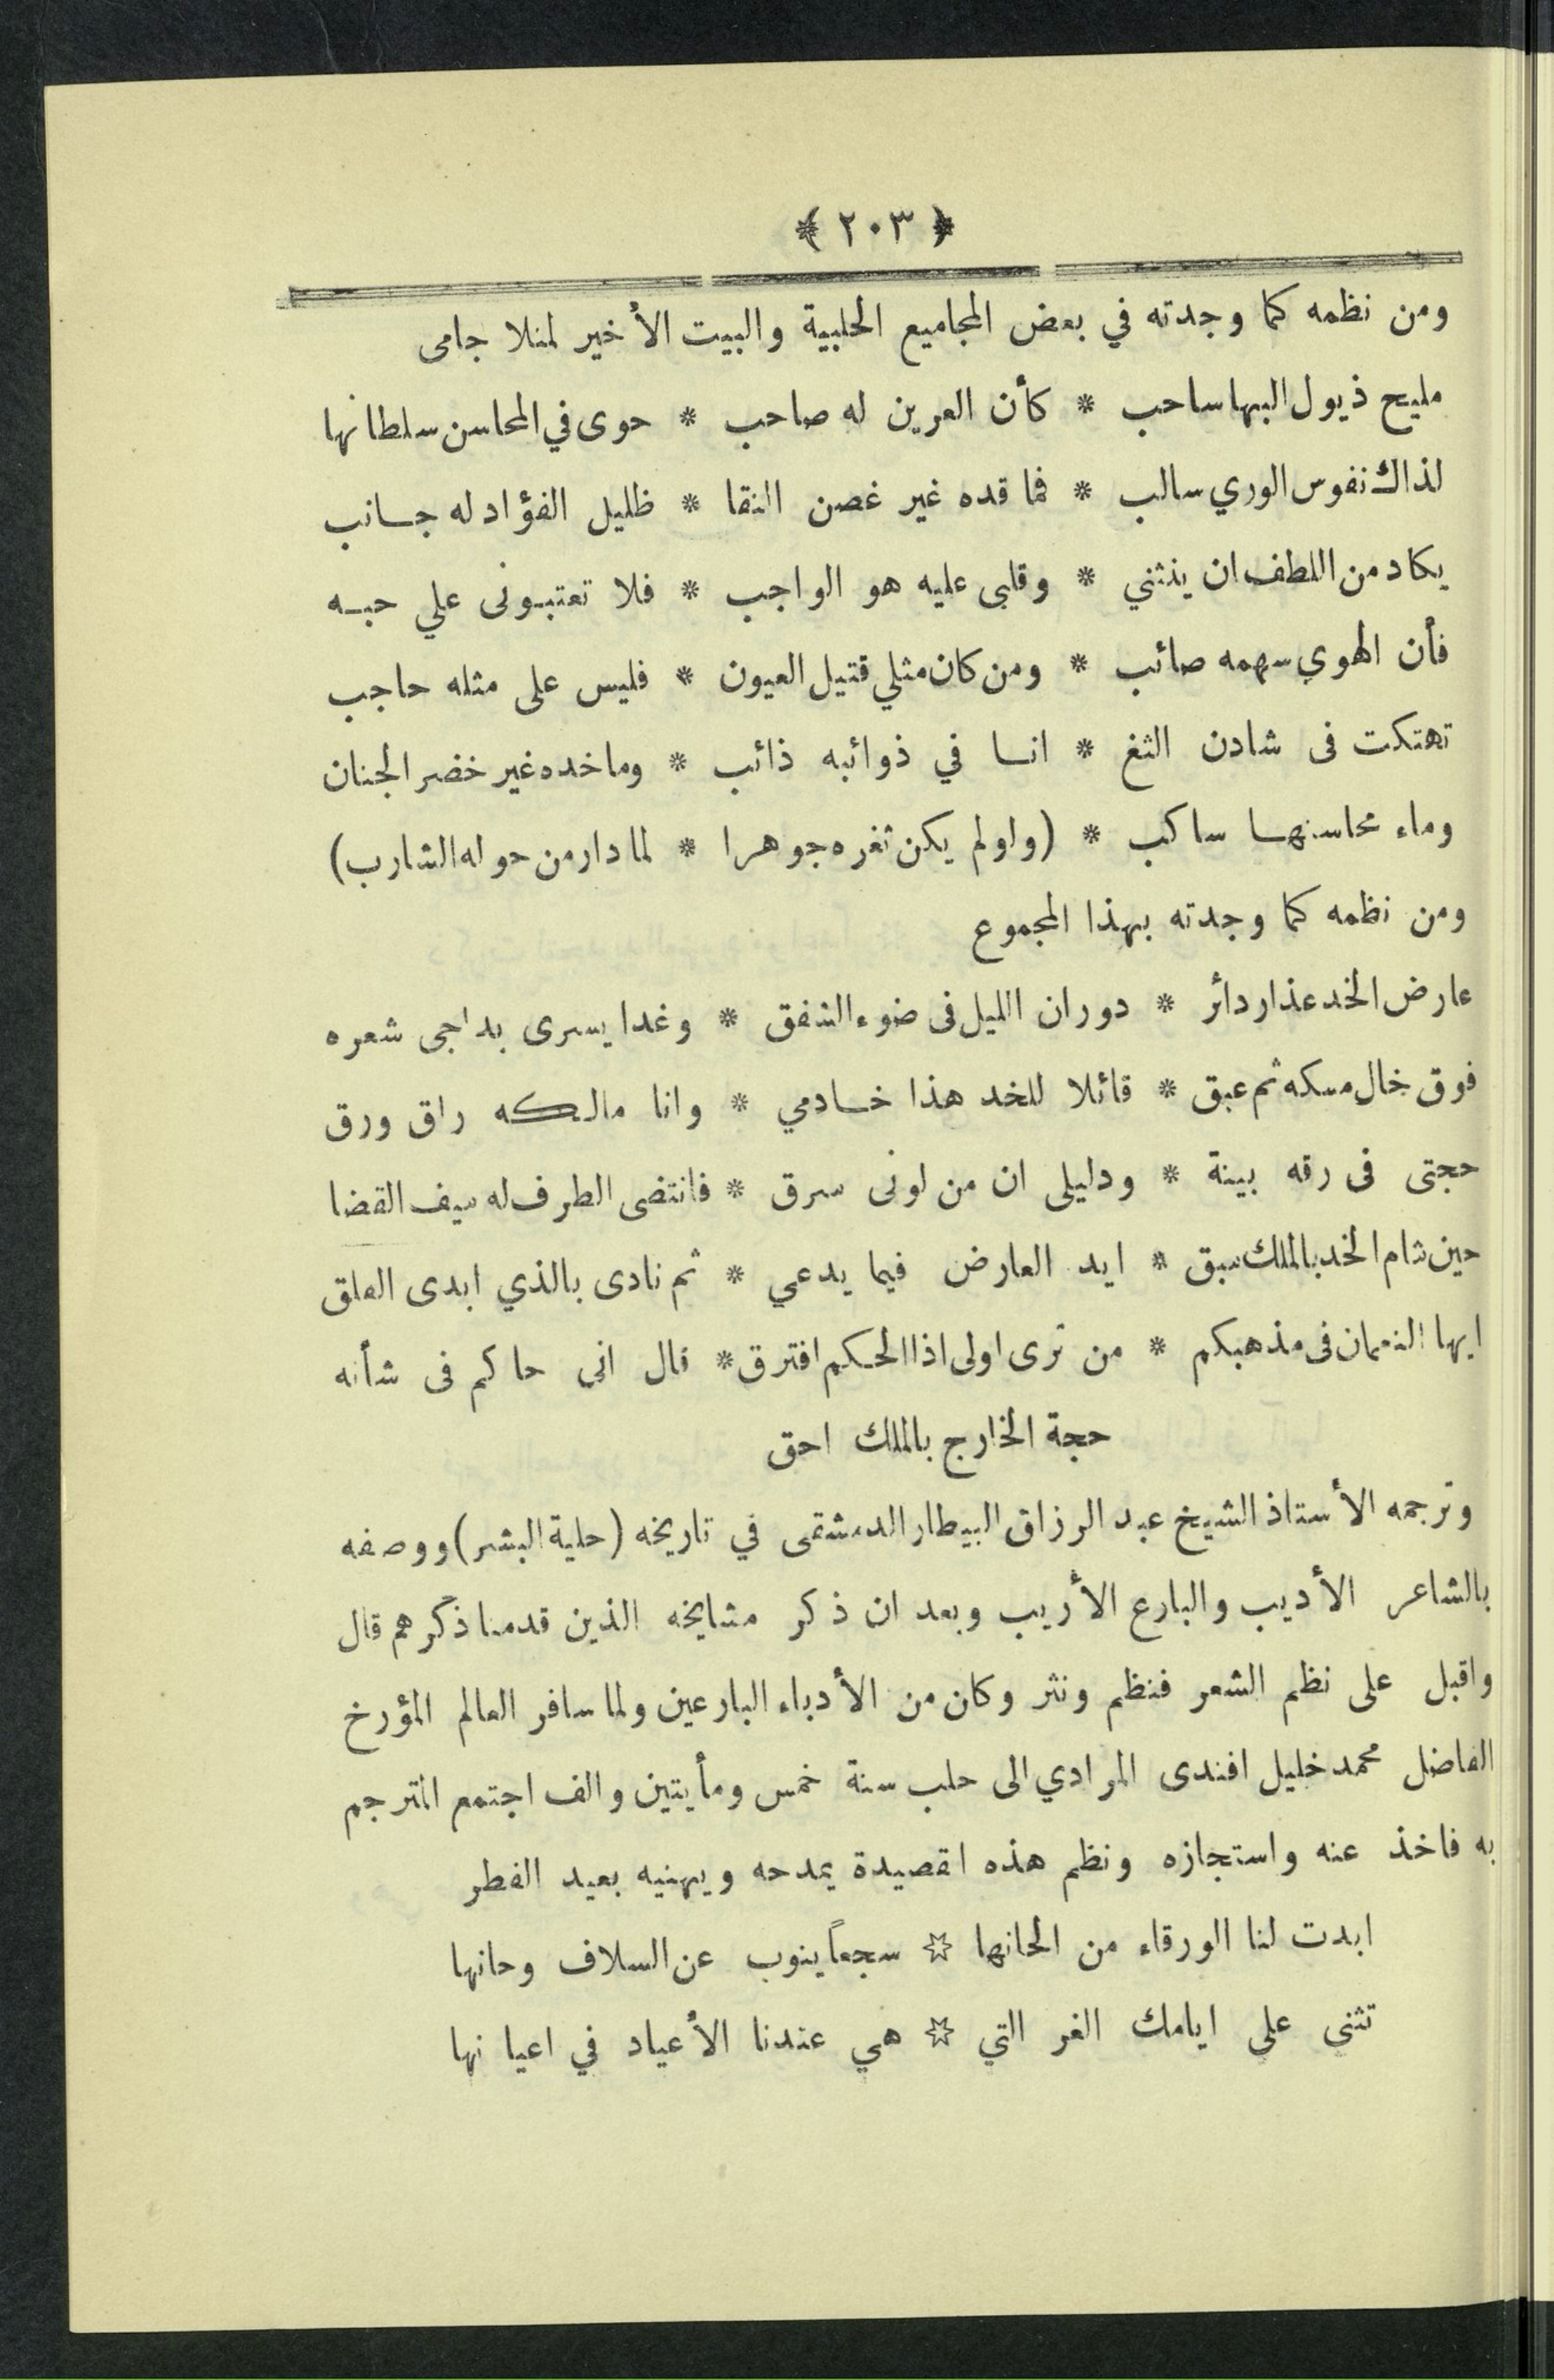 ﴿ ٢٠٣ ﴾
ومن نظمه كما وجدته في بعض المجاميع الحلبية والبيت الأخير لمنلا جامى
مليح ذيول البها ساحب * كأن العرين له صاحب * حوى في المحاسن سلطانها
لذاك نفوس الوري سالب * فما قده غير غصن النقا * ظليل الفؤاد له جانب
يكاد من اللطف ان ينثني * وقلبى عليه هو الواجب * فلا تعتبونى علي حبه
فأن الهوي سهمه صائب * ومن كان مثلي قتيل العيون * فليس على مثله حاجب
تهتكت فى شادن الثغ * انا في ذوائبه ذائب * وما خده غير خضر الجنان
وماء محاسنها ساكب * (واولم يكن ثغره جوهرا * لما دار من حوله الشارب)
ومن نظمه كما وجدته بهذا المجموع
عارض الخد عذار دائر * دوران الليل فى ضوء الشفق * وغدا يسرى بداجى شعره
فوق خال مسكه ثم عبق * قائلا للخد هذا خادمي * وانا مالكه راق ورق
حجتى فى رقه بينة * ودليلى ان من لونى سرق * فانتضى الطرف له سيف القضا
حين شام الخد بالملك سبق * ايد العارض فيما يدعي * ثم نادى بالذي ابدى العلق
ايها النعمان فى مذهبكم * من ترى اولى اذا الحكم افترق * قال انى حاكم فى شأنه
حجة الخارج بالملك احق
وترجمه الأستاذ الشيخ عبد الرزاق البيطار الدمشقى في تاريخه (حلية البشر) ووصفه
بالشاعر الأديب والبارع الأريب وبعد ان ذكر مشايخه الذين قدمنا ذكرهم قال
واقبل على نظم الشعر فنظم ونثر وكان من الأدباء البارعين ولما سافر العالم المؤرخ
الفاضل محمد خليل افندى المرادي الى حلب سنة خمس ومأيتين والف اجتمع المترجم
به فاخذ عنه واستجازه ونظم هذه اقصيدة يمدحه ويهنيه بعيد الفطر
ابدت لنا الورقاء من الحانها ☆ سجعاً ينوب عن السلاف وحانها
تثنى على ايامك الغر التي ☆ هي عندنا الأعياد في اعيانها